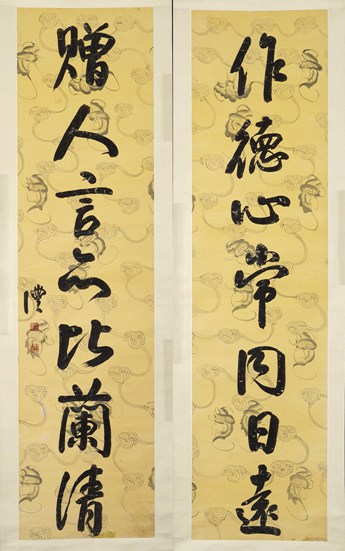 作德心常同日遠
贈人言亦比蘭清